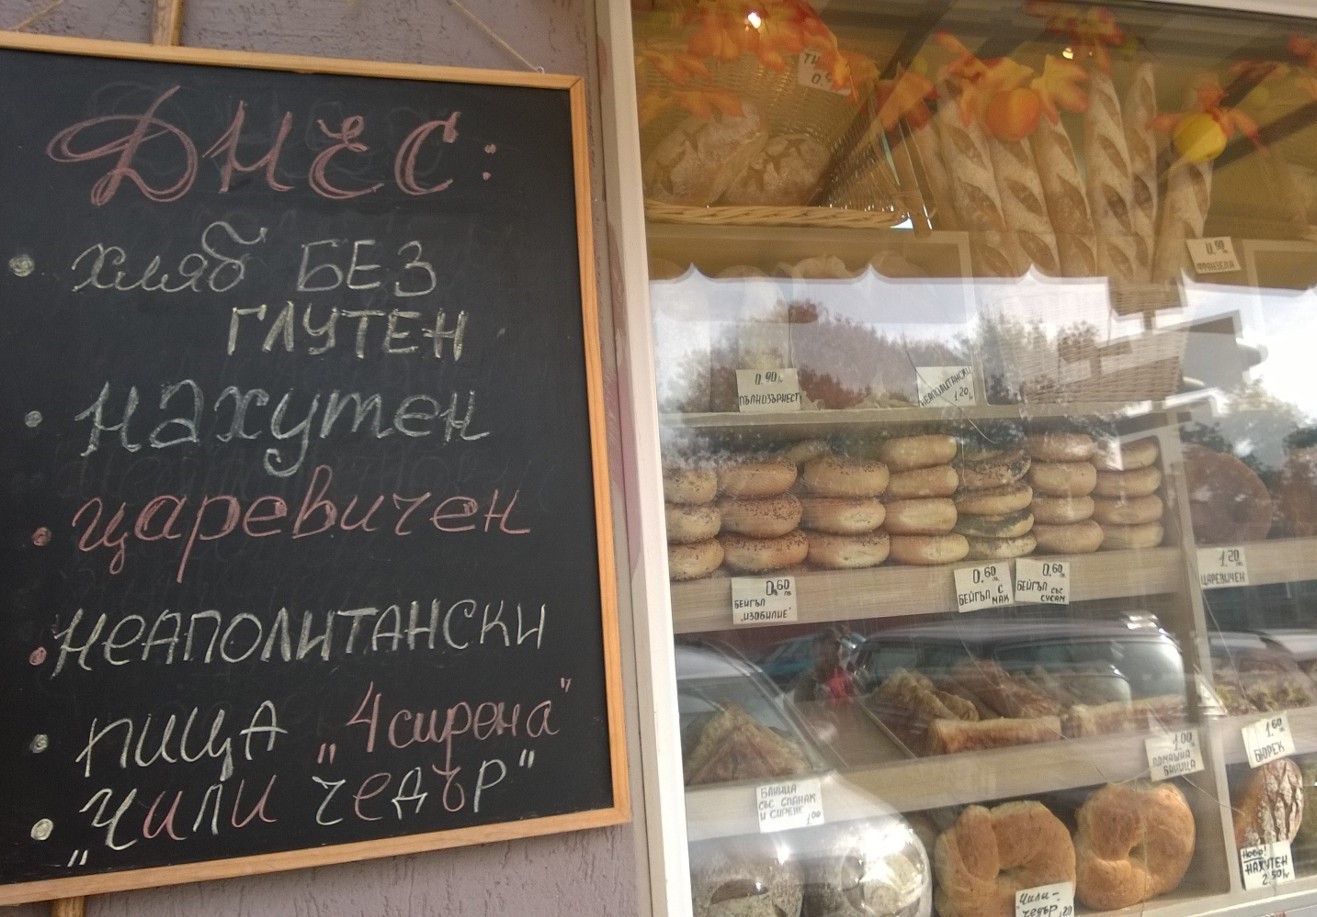 ДНЕС:
• хляб БЕЗ
ГЛУТЕН
• нахутен
• царевичен
• НЕАПОЛИТАНСКИ
• пицА „4 сирена"
• „Чили чедър"
0.90
ПЪЛНОЗЪРНЕСТ
НЕАПОЛИТАНСКИ
1.20
0.99
ФРАНЗЕЛА
0.60 лв
БЕЙГЪЛ
„ИЗОБИЛИЕ"
0.60 лв
БЕЙГЪЛ С
МАК
0.60 лв
БЕЙГЪЛ със
СУСАМ
1.20
ЦАРЕВИЧЕН
1.00
ДОМАШНА
БАНИЦА
1.60
БЮРЕК
БАНИЦА
СЪС СПАНАК
И СИРЕНЕ 1.00
НОВО!
НАХУТЕН
2.50 лв
"Чили-
чедър"